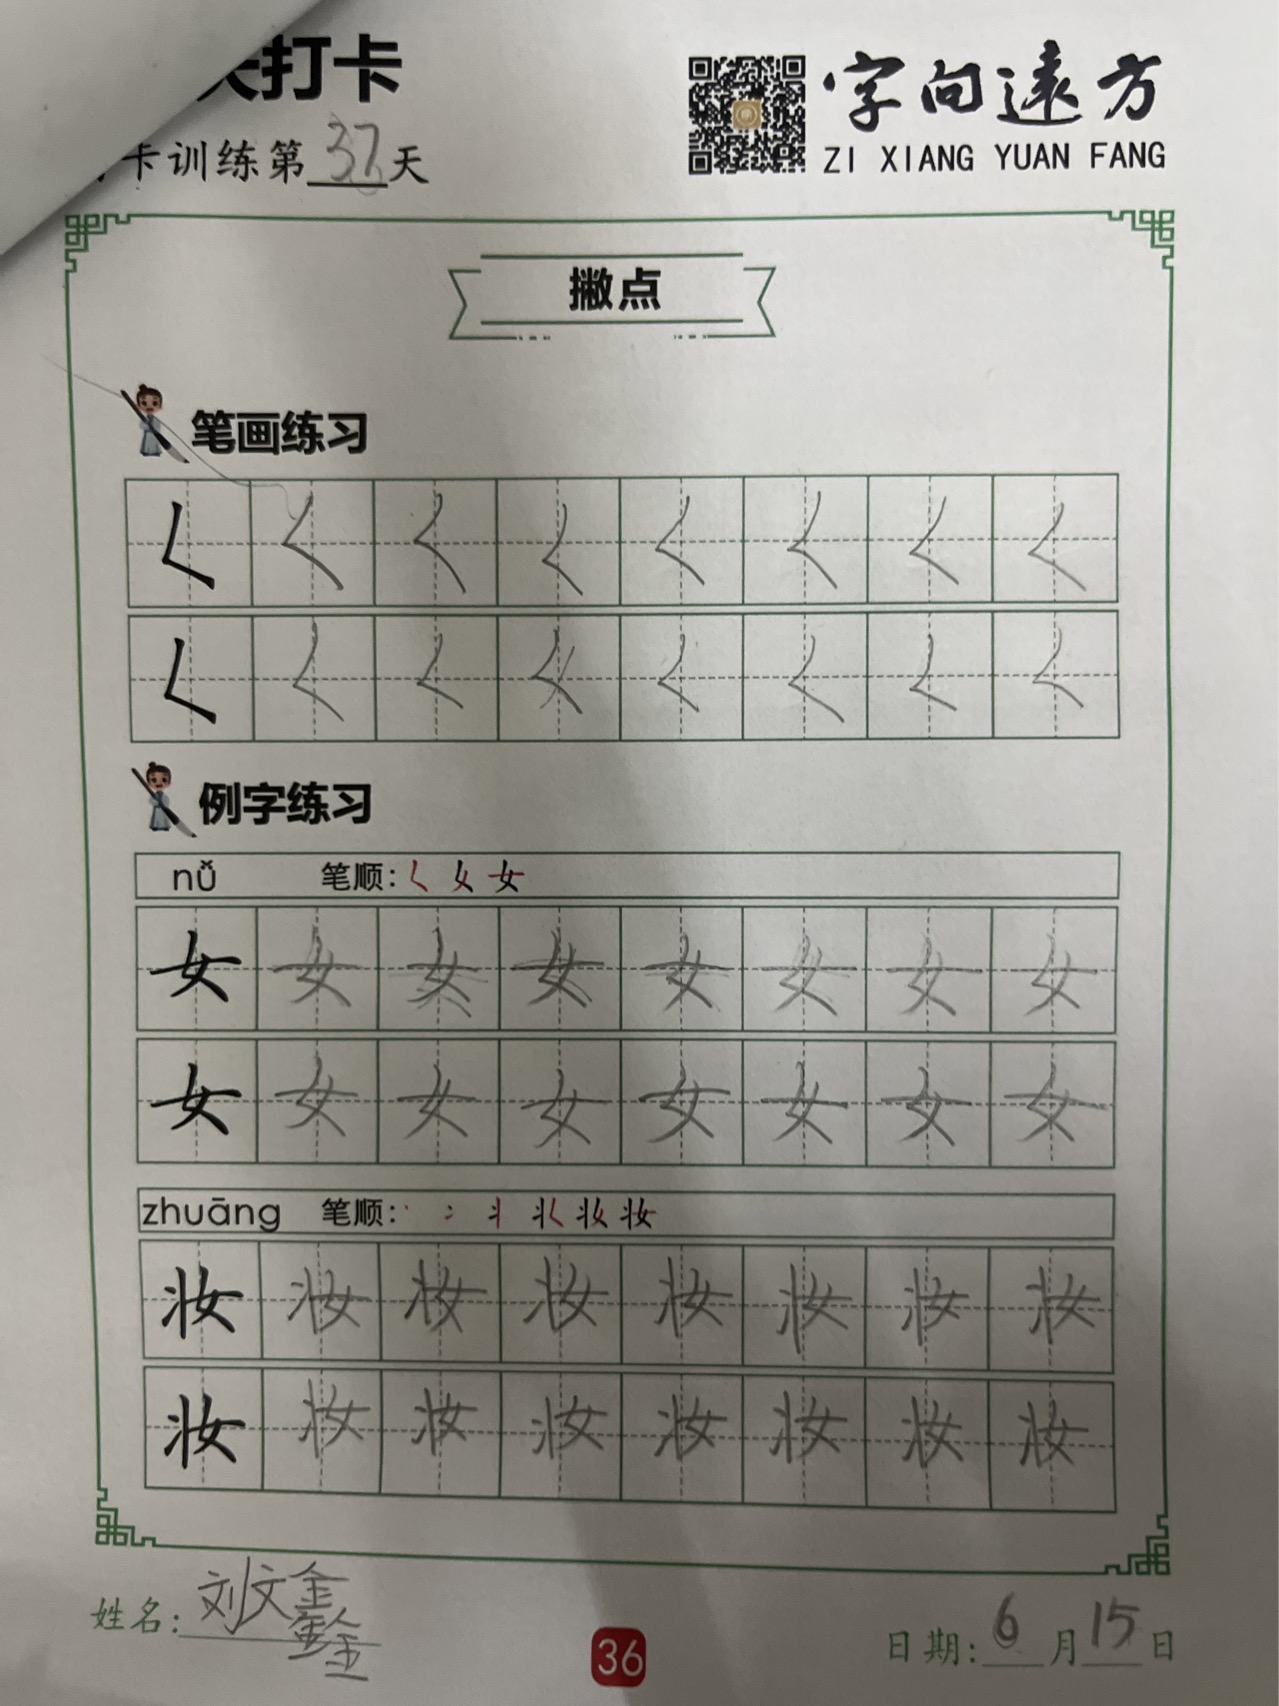 打卡
字向遠方
卡训练第37天
ZI XIANG YUAN FANG
撇点
笔画练习
𡿨 𡿨 𡿨 𡿨 𡿨 𡿨 𡿨 𡿨
𡿨 𡿨 𡿨 𡿨 𡿨 𡿨 𡿨 𡿨
例字练习
nǚ 笔顺:
女 女 女 女 女 女 女 女
女 女 女 女 女 女 女 女
zhuāng 笔顺:
妆 妆 妆 妆 妆 妆 妆 妆
妆 妆 妆 妆 妆 妆 妆 妆
姓名:刘文鑫
日期:6月15日
36